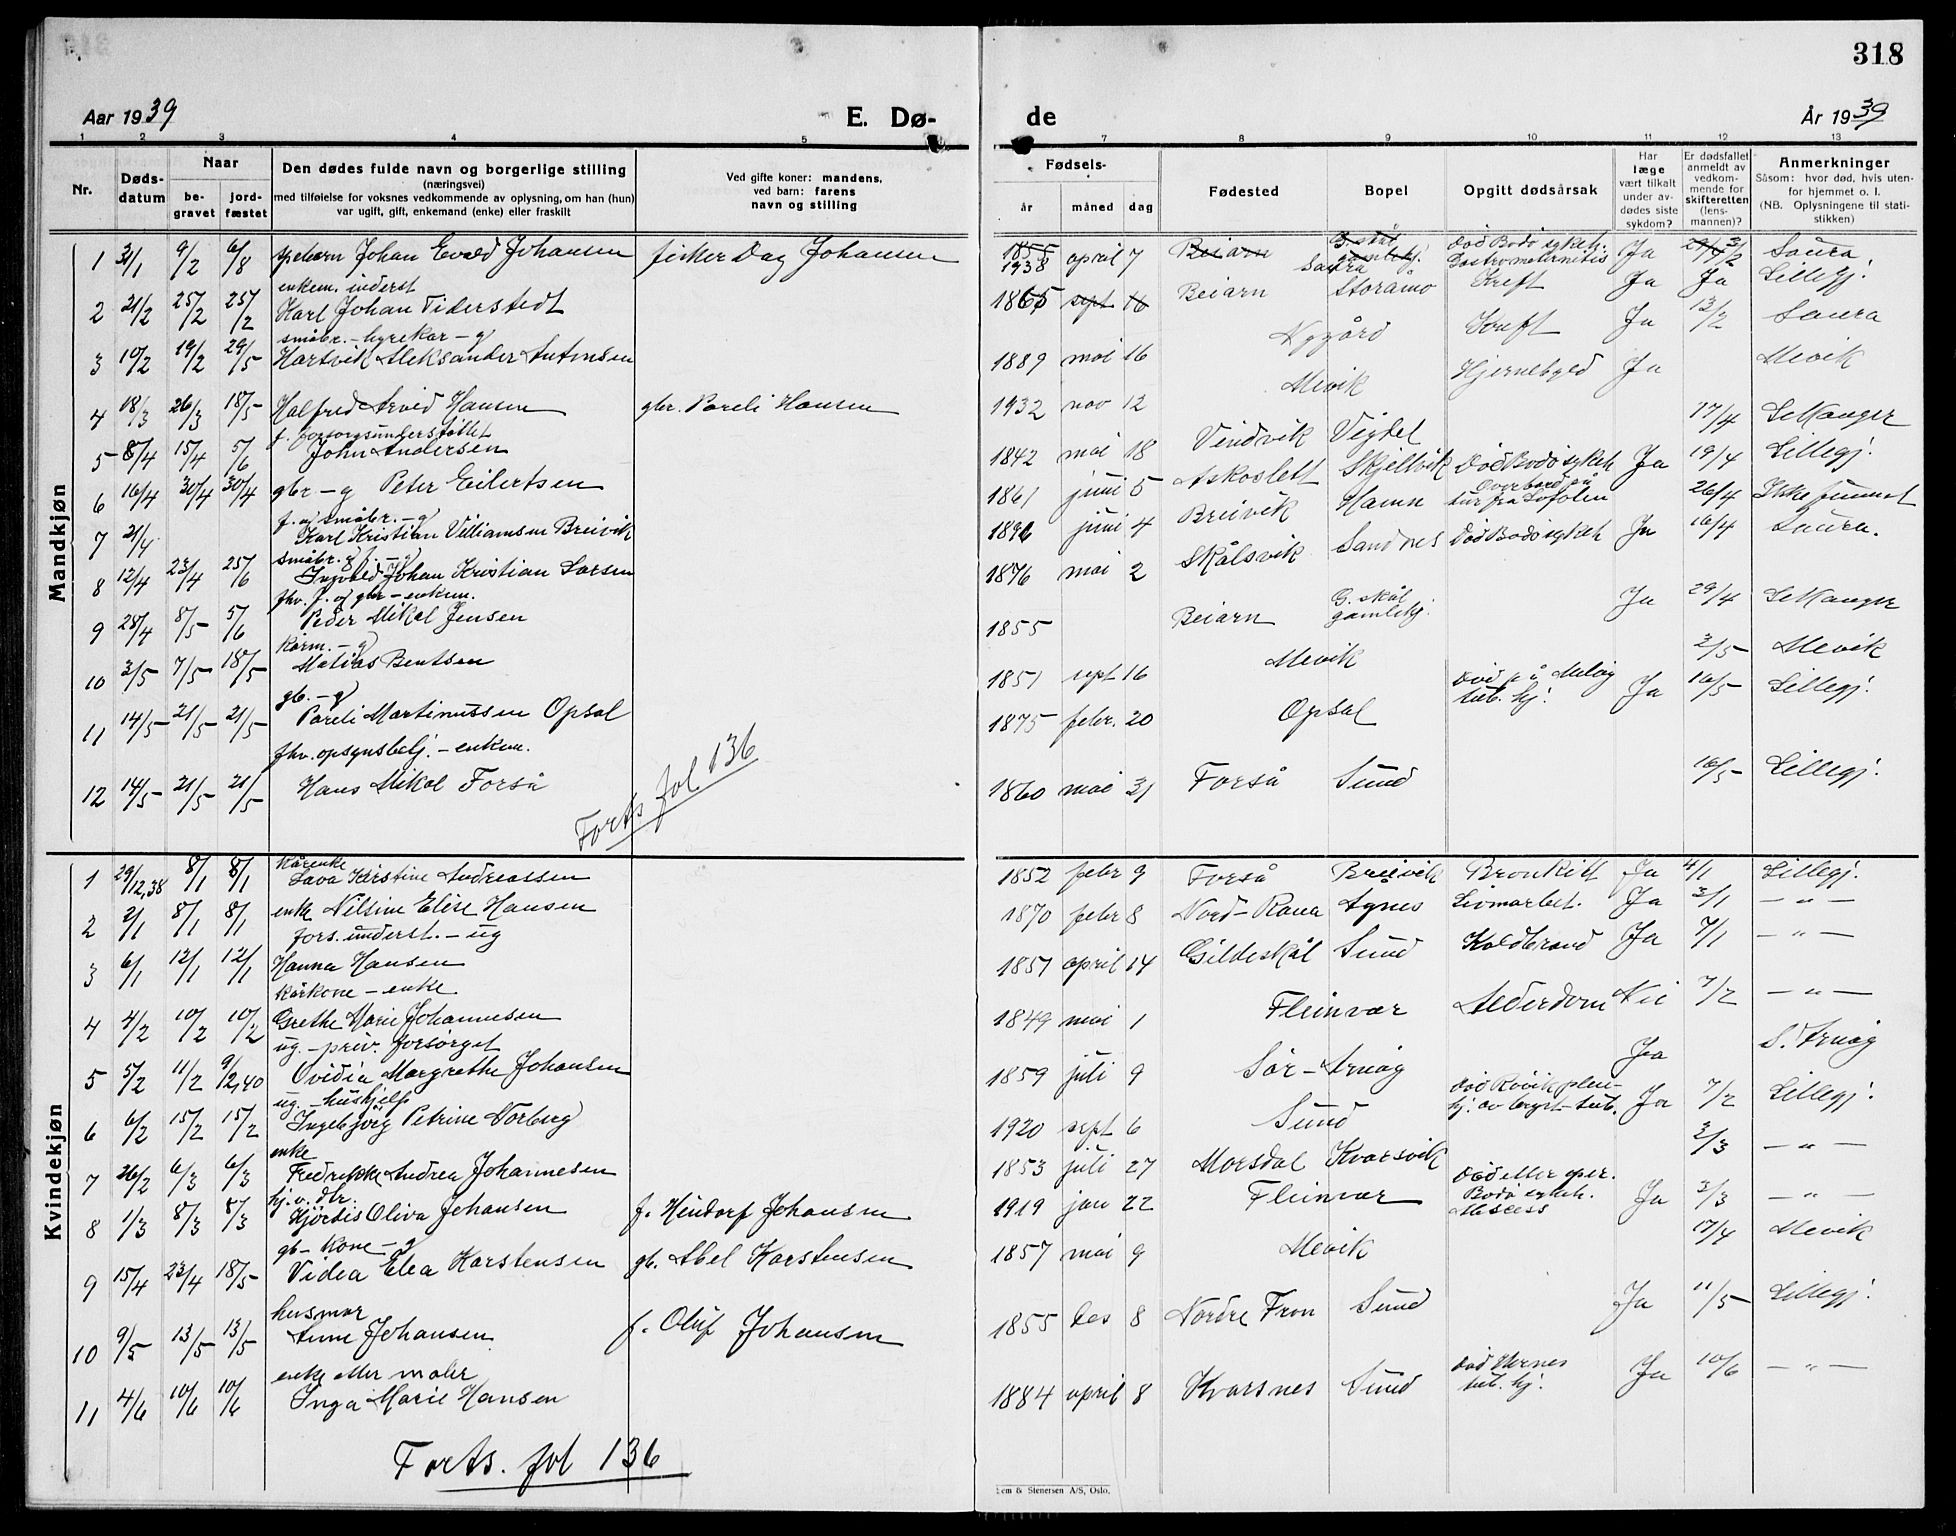 318
Aar 1939
E. Dø-
de
År 1939
1 2 3 4 5 7 8 9 10 11 12 13
Nr.
Døds-
datum
Naar
be-
gravet
jord-
fæstet
Den dødes fulde navn og borgerlige stilling
(næringsvei)
med tilføielse for voksnes vedkommende av oplysning, om han (hun)
var ugift, gift, enkemand (enke) eller fraskilt
Ved gifte koner: mandens,
ved barn: farens
navn og stilling
Fødsels-
år måned dag
Fødested
Bopel
Opgitt dødsårsak
Har
læge
vært tilkalt
under av-
dødes siste
sykdom?
Er dødsfallet
anmeldt av
vedkom-
mende for
skifteretten
(lens-
mannen)?
Anmerkninger
Såsom: hvor død, hvis uten-
for hjemmet o. l.
(NB. Oplysningene til stati-
stikken)
Mandkjøn
1 31/1 9/2 6/8 Johan Evald Johansen fisker Dag Johansen 1855 1938 april 7 Beiarn G. skål gamlehj. Saura Død Bodø sykeh. Ja 3/2 Saura
enkem. inderst
2 21/2 25/2 25/2 Karl Johan Tiderstedt 1865 sept 16 Beiarn Storåmo Kreft Ja Ja Lillegj.
småbr. - hyrekar - g
3 10/2 19/2 29/5 Hartvik Aleksander Antonsen 1889 mai 16 Nygård Kreft Ja 13/2 Saura
4 18/3 26/3 18/5 Halfred Arvid Hansen gbr. Pareli Hansen 1932 nov 12 Mevik Hjernebyld Ja Mevik
f. forsorgsunderstøttet
5 8/4 15/4 5/6 John Andersen 1842 mai 18 Vindvik Vigtel 17/4
6 16/4 30/4 30/4 gbr - g Peter Eilertsen 1861 juni 5 Askoslett Skjellvik Død Bodø sykeh Ja 19/4 Lillegj.
f. og småbr. - g
7 21/4 Karl Kristian Villiamsen Breivik juni 4 Breivik Hamn Overbord på tur fra Lofoten 26/4 Ikke funnet
småbr. og f. - g
8 12/4 23/4 25/6 Ingvald Johan Kristian Larsen 1876 mai 2 Skålsvik Sandnes Død Bodø sykeh Ja 16/4 Saura.
fhv. f. og gbr - enkem.
9 28/4 8/5 5/6 Peder Mikal Jensen 1855 Beiarn G. skål gamlehj. Ja 29/4
kårm. - g
10 3/5 7/5 18/5 Matias Bentsen 1851 sept 16 Mevik 3/5 Mevik
gb. - g
11 14/5 21/5 21/5 Pareli Martinussen Opsal 1875 febr. 20 Opsal Død på tub. hj. Ja 16/5 Lillegj.
fhv. opsynsbetj. - enkem.
12 14/5 21/5 21/5 Hans Mikal Forså 1860 mai 31 Forså Sund 16/5 Lillegj.
Forts fol 136
Kvindekjøn
kårenke
1 29/12,38 8/1 8/1 Lava Kirstine Andreassen 1852 febr 9 Forså Breivik Bronkitt Ja 4/1 Lillegj.
2 2/1 8/1 8/1 enke Nilsine Elise Hansen 1870 febr 8 Nord-Rana Agnes Ja 3/1 - " -
fors. underst. - ug
3 6/1 12/1 12/1 Hanna Hansen 1857 april 14 Gildeskål Sund Koldbrand Ja 7/1 - " -
kårkone - enke
4 4/2 10/2 10/2 Grethe Marie Johannesen 1849 mai 1 Fleinvær Alderdom Nei 7/2 - " -
ug. - priv. forsørget
5 5/2 11/2 9/2,40 Ovidia Margrethe Johansen 1859 juli 9 Sør-Arnøy Ja S. Arnøy
ug. - hushjelp
6 6/2 15/2 15/2 Ingebjørg Petrine Norberg 1920 sept 6 Sund Død Røvik pleiehj. av tub. Ja 7/2 Lillegj.
enke
7 26/2 6/3 6/3 Fredrikke Andrea Johannesen 1853 juli 27 Morsdal Kvarsvik 2/3 - " -
hj.v. dtr.
8 1/3 8/3 8/3 Hjørdis Oliva Johansen f. Heidorf Johansen 1919 jan 22 Fleinvær Død etter oper. Bodø sykeh. Abscess Ja 3/3 - " -
gb - kone - g
9 15/4 23/4 18/5 Vidia Elea Karstensen gb. Abel Karstensen 1857 mai 9 Mevik 17/4 Mevik
husmor
10 9/5 13/5 13/5 Anne Johansen f. Oluf Johansen 1855 des 8 Nordre Fron Sund Ja 11/5 Lillegj.
enke etter maler
11 4/6 10/6 10/6 Inga Marie Hansen 1884 april 8 Kvarsnes Sund Død Hernes tub. hj. Ja 10/6 - " -
Forts. fol 136
& Stenersen A/S, Oslo.